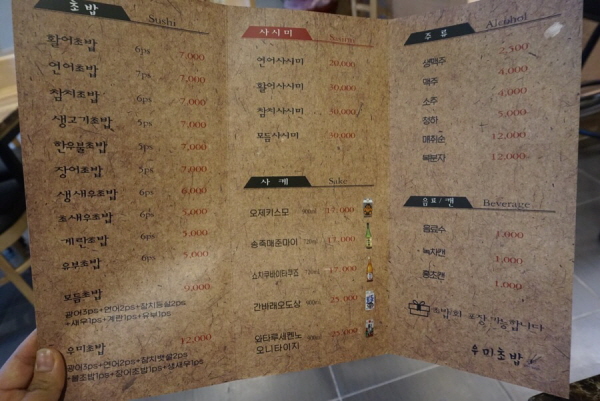 초밥 Sushi
활어초밥 6ps 7,000
연어초밥 7ps 7,000
참치초밥 6ps 7,000
생고기초밥 5ps 7,000
한우불초밥 5ps 7,000
장어초밥 5ps 7,000
생새우초밥 6ps 6,000
초새우초밥 6ps 5,000
계란초밥 6ps 5,000
유부초밥 6ps 5,000
모듬초밥 9,000
광어3ps+연어2ps+참치등살2ps
+새우1ps+계란1ps+유부1ps
우미초밥 12,000
광어3ps+연어2ps+참치뱃살2ps
+불초밥1ps+장어초밥1ps+생새우1ps
사시미
연어사시미 20,000
활어사시미 30,000
참치사시미 30,000
모듬사시미 30,000
사케 Sake
오제키스모 900㎖ 17,000
송죽매준마이 720㎖ 17,000
17,000
간바레오도상 900㎖ 25,000
와타루세켄노 900㎖ 25,000
오니타이지
주류 Alcohol
생맥주 2,500
맥주 4,000
소주 4,000
청하 5,000
매취순 12,000
복분자 12,000
음료/캔 Beverage
음료수 1,000
녹차캔 1,000
홍초캔 1,000
초밥(회) 포장 가능합니다
우미초밥